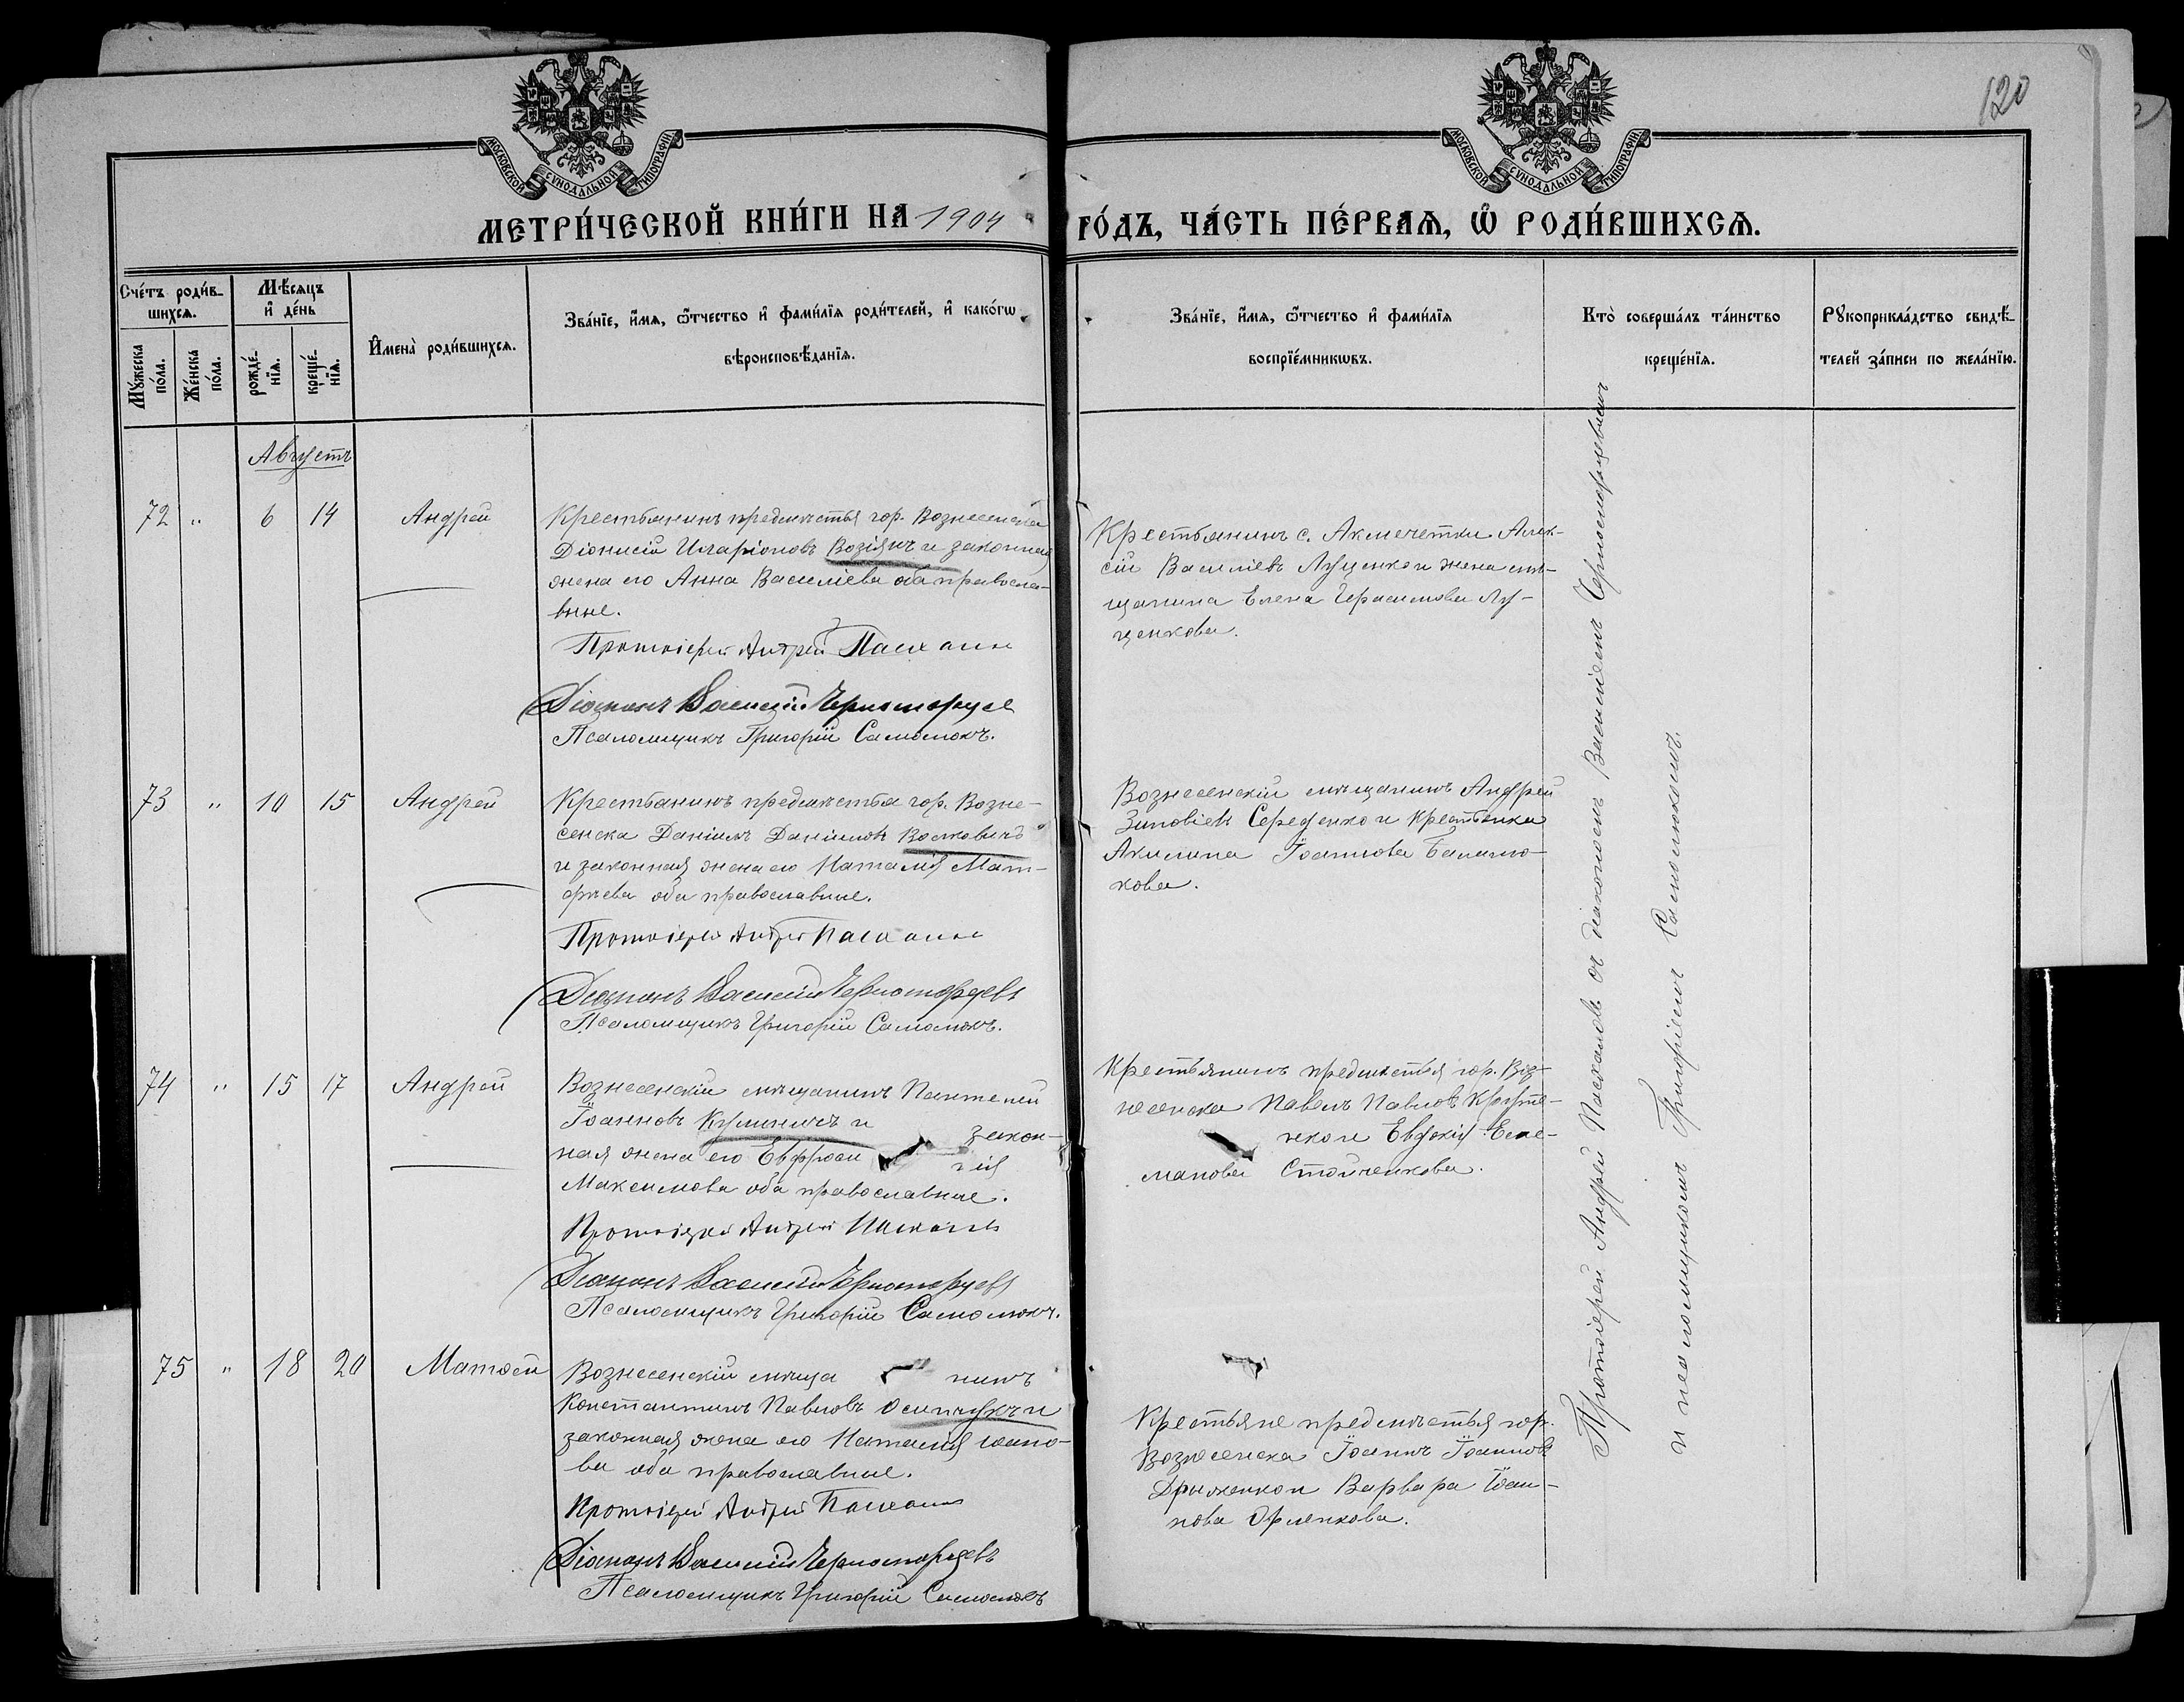 120
МОСКОВСКОЙ СѴНОДАЛЬНОЙ ТИПОГРАФІИ
МОСКОВСКОЙ СѴНОДАЛЬНОЙ ТИПОГРАФІИ
МЕТРИ́ЧЕСКОЙ КНИ́ГИ НА 1904 ГО́ДЪ, ЧА́СТЬ ПЕ́РВАЯ, Ѡ РОДИ́ВШИХСЯ.
Сче́тъ роди́в-
шихся.
Му́жеска
по́ла.
Же́нска
по́ла.
Мѣ́сяцъ
и де́нь
рожде́-
нїя.
креще́-
нїя.
Имена̀ роди́вшихся.
Зва́нїе, и́мя, ѻ́тчество и фами́лїя роди́телей, и како́гѡ
вѣроисповѣ́данїя.
Зва́нїе, и́мя, ѻ́тчество и фами́лїя
воспрїе́мникѡвъ.
Кто̀ соверша́лъ та́инство
креще́нїя.
Рꙋкоприкла́дство свидѣ́-
телей за́писи по жела́нїю.
Августъ
72 " 6 14 Андрей
Крестьянинъ предмѣстья гор. Вознесенска
Діонисій Иларіоновъ Возіянъ и законная
жена его Анна Василіева оба православ-
вные.
Протоіерей Андрей Пасхаловъ
Діаконъ Василій Черноморцевъ
Псаломщикъ Григорій Самолюкъ.
Крестьянинъ с. Акмечетки Алек-
сій Василіевъ Луценко и жена мѣ-
щанина Елена Герасимова Лу-
ценкова.
73 " 10 15 Андрей
Крестьянинъ предмѣстья гор. Возне-
сенска Даніилъ Даніиловъ Волковинъ
и законная жена его Наталія Мат-
фѣева оба православные.
Протоіерей Андрей Пасхаловъ
Діаконъ Василій Черноморцевъ
Псаломщикъ Григорій Самолюкъ.
Вознесенскій мѣщанинъ Андрей
Зиновіевъ Середенко и крестьянка
Акилина Іоаннова
кова.
74 " 15 17 Андрей
Вознесенскій мѣщанинъ Пантелей
Іоанновъ и закон-
ная жена его Евфросинія
Максимова оба православные.
Протоіерей Андрей Пасхаловъ
Діаконъ Василій Черноморцевъ
Псаломщикъ Григорій Самолюкъ.
Крестьянинъ предмѣстья гор. Воз-
несенска Павелъ Павловъ
и Евдокія
Стойченкова.
75 " 18 20 Матѳей
Вознесенскій мѣщанинъ
Константинъ Павловъ Осипчукъ и
законная жена его Наталія Іоанно-
ва оба православные.
Протоіерей Андрей Пасхаловъ
Діаконъ Василій Черноморцевъ
Псаломщикъ Григорій Самолюкъ
Крестьяне предмѣстья гор.
Вознесенска Іоаннъ Іоанновъ
и Варвара Іоан-
нова
Протоіерей Андрей Пасхаловъ съ діакономъ Василіемъ Черноморцевымъ
и псаломщикомъ Григоріемъ Самолюкомъ.